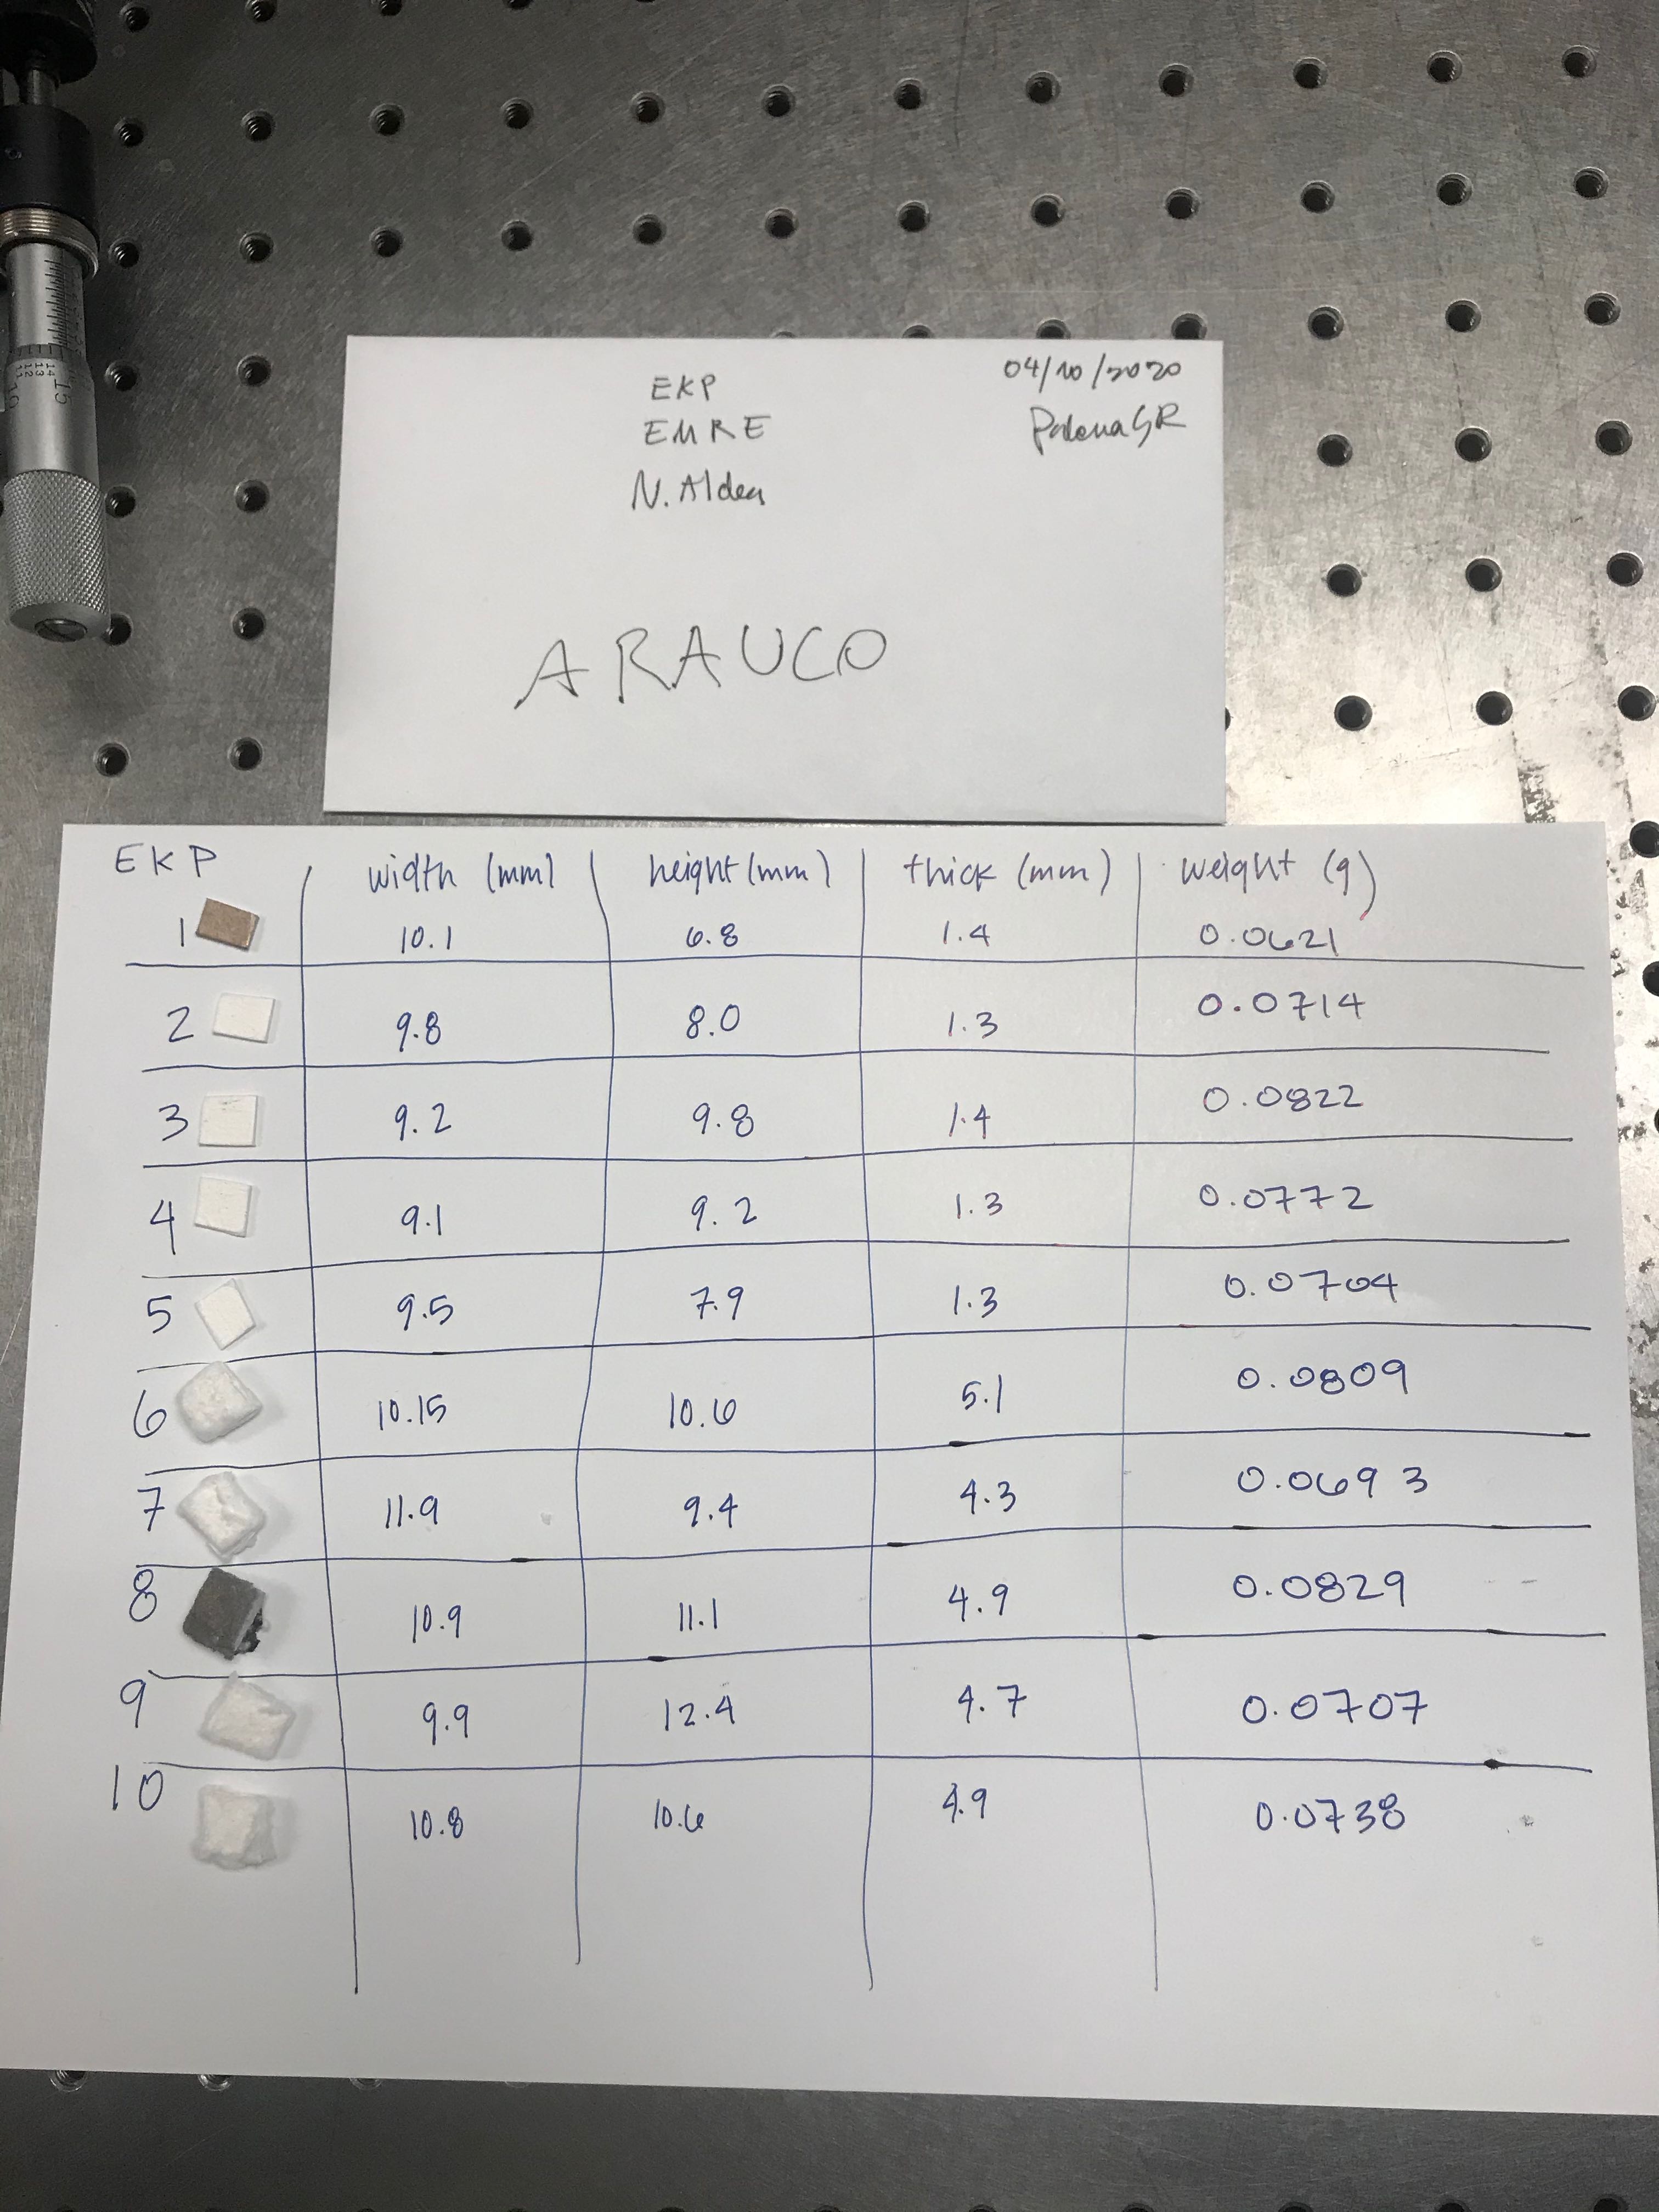 EKP
04/10/2020
EMRE
N. Aldea
ARAUCO
EKP width (mm) height (mm) thick (mm) weight (g)
1 10.1 6.8 1.4 0.0621
2 9.8 8.0 1.3 0.0714
3 9.2 9.8 1.4 0.0822
4 9.1 9.2 1.3 0.0772
5 9.5 7.9 1.3 0.0704
6 10.15 10.6 5.1 0.0809
7 11.9 9.4 4.3 0.0693
8 10.9 11.1 4.9 0.0829
9 9.9 12.4 4.7 0.0707
10 10.8 10.6 4.9 0.0738
15
14
13
12
11
10